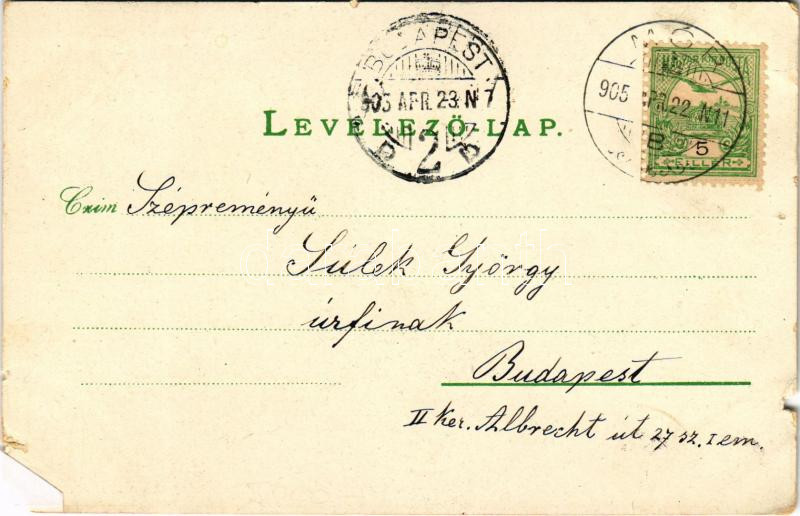 BUDAPEST
905 APR. 23. N 7
2
905 APR. 22. N 11
5
FILLER
LEVELEZŐ-LAP.
Czim Szépreményű
Sülek György
úrfinak
Budapest
II ker. Albrecht út 27 sz. I em.